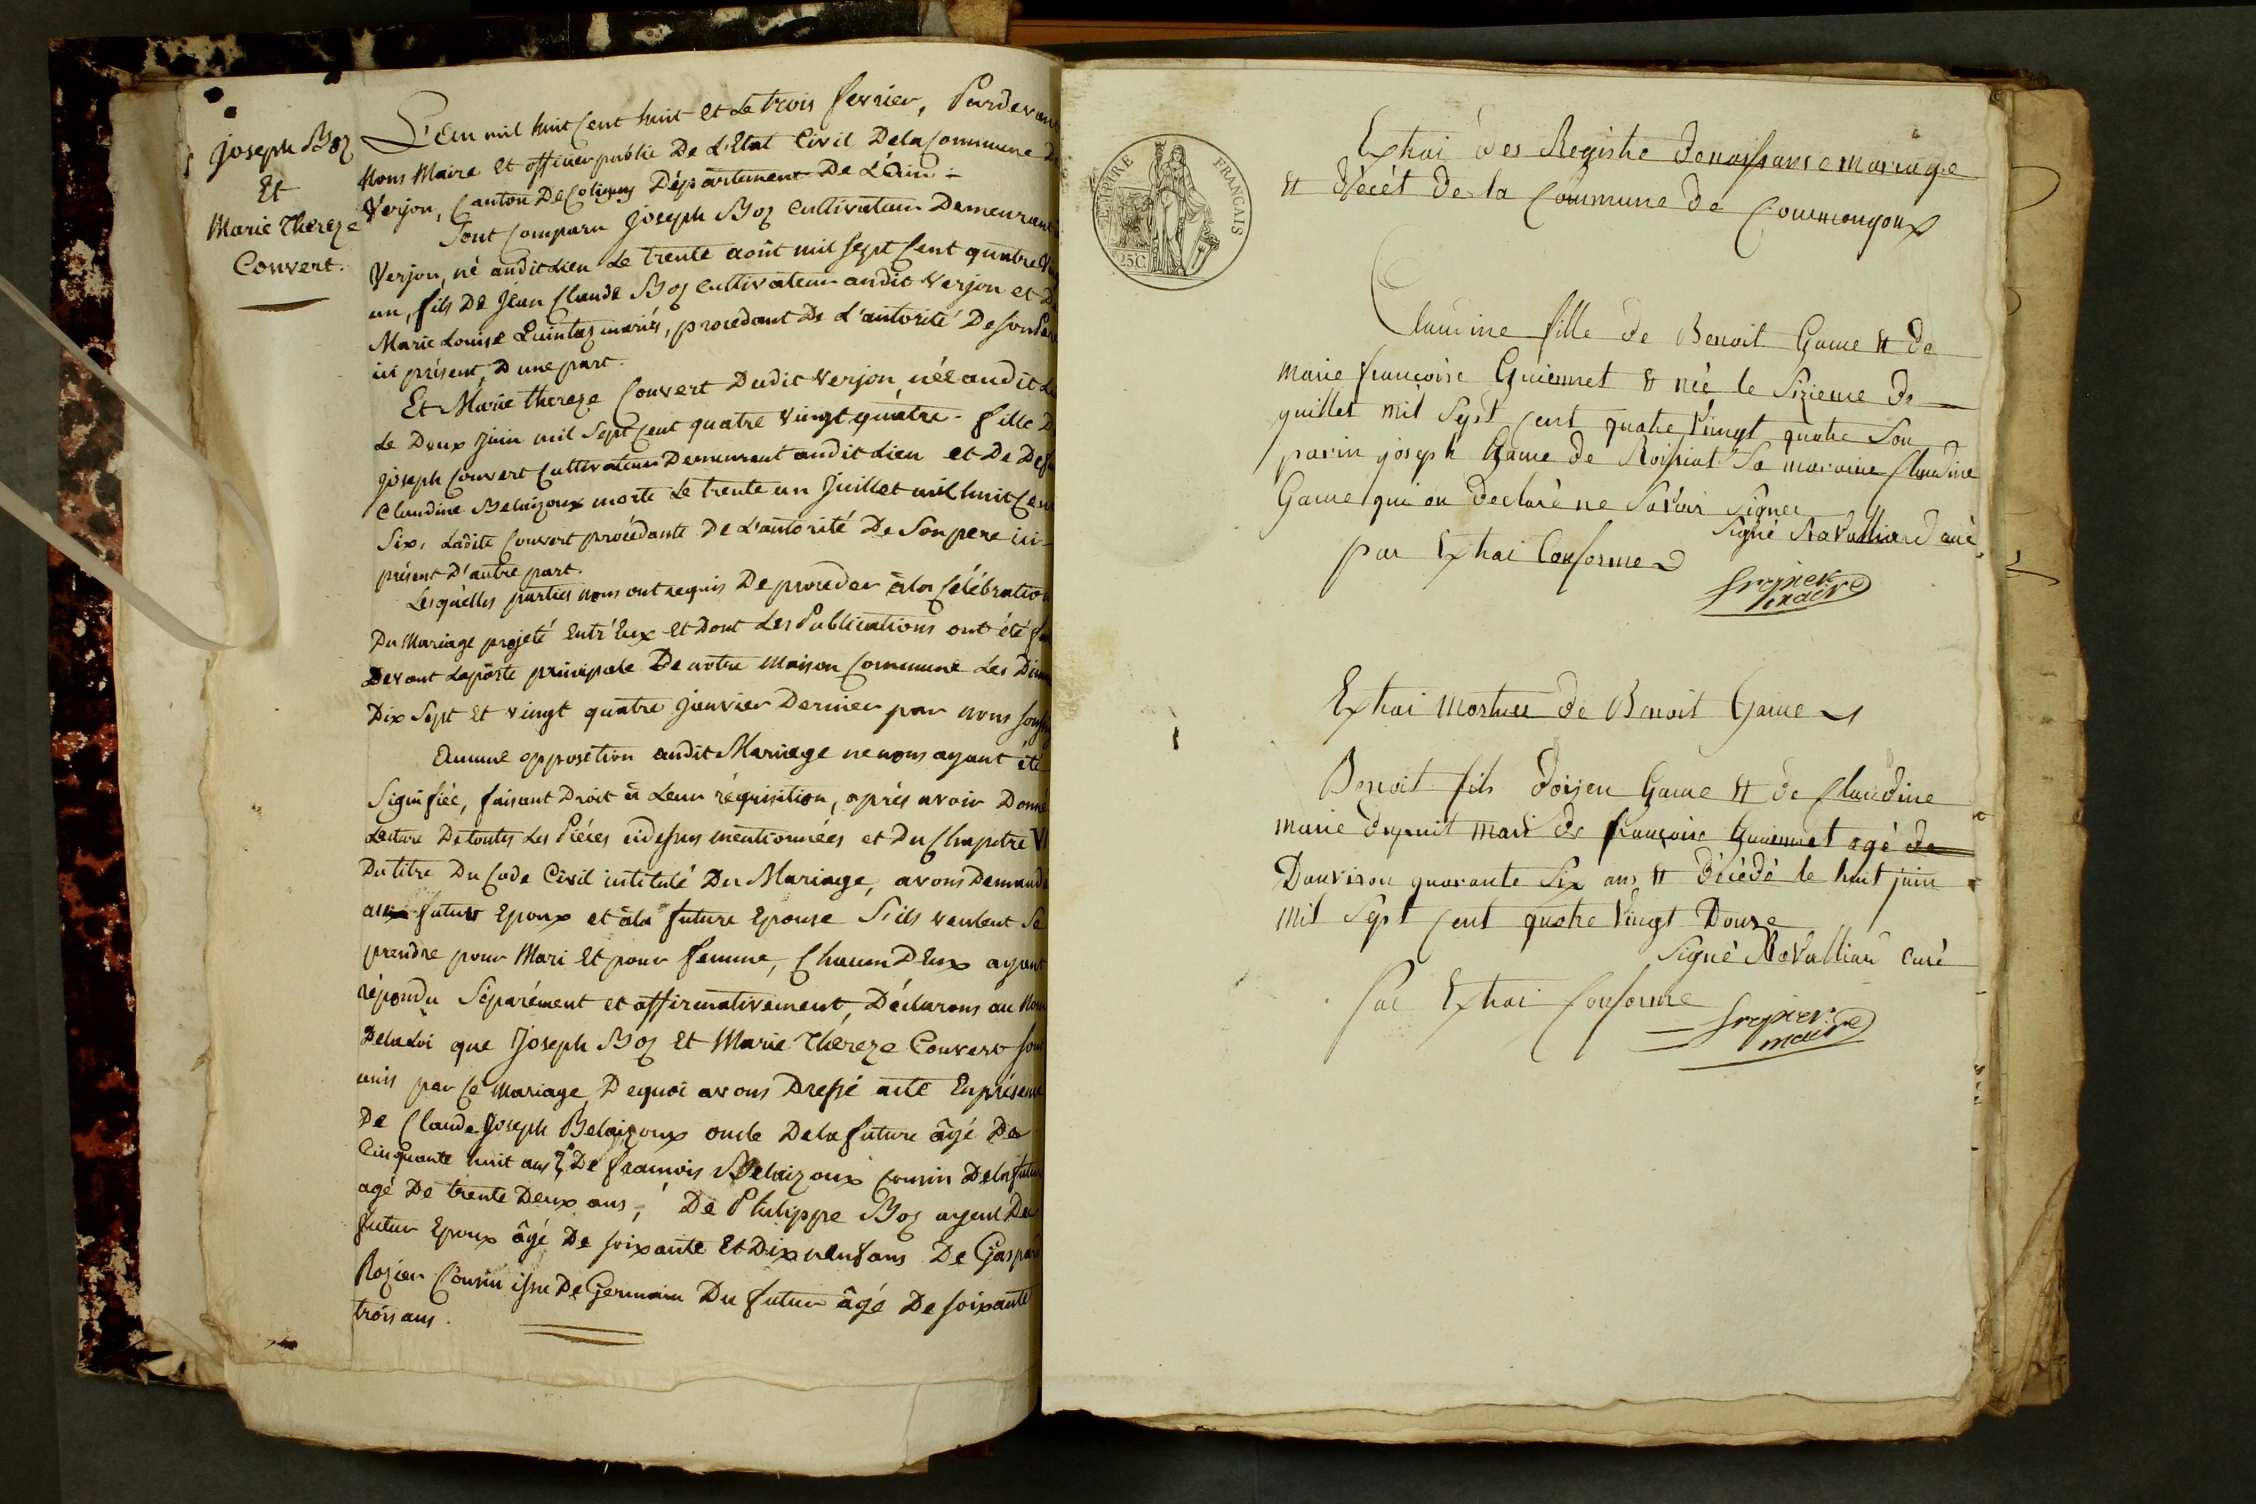 Joseph Boz
Et
Marie Thereze
Convert.
L'an mil huit Cent huit et Le trois fevrier, Pardevant
Nous Maire et officier public De L'Etat Civil De la Commune De
Verjon, Canton De Coligny Département De L'ain -
Sont Comparu Joseph Boz Cultivateur Demeurant à
Verjon, né audit Lieu Le trente août mil Sept Cent quatre Vingt
un, fils De Jean Claude Boz Cultivateur audit Verjon et De
Marie Louise Quintaz mariés, procedant De L'autorité De Son Pere
ici présent, D'une part.
Et Marie thereze Convert Dudit Verjon née audit Lieu
Le Deux Juin mil Sept Cent quatre Vingt quatre - fille De
Joseph Convert Cultivateur Demeurant audit Lieu et De Defunte
Claudine Belaizoux morte Le trente un Juillet mil huit Cent
Six, Ladite Convert procédante De L'autorité De Son pere ici
présent D'autre part.
Lesquelles parties nous ont requis De proceder à la Célébration
Du Mariage projeté Entr'Eux et Dont Les Publications ont été
Devant La porte principale De notre Maison Commune Les
Dix Sept Et vingt quatre Janvier Dernier par nous
Aucune opposition audit Mariage ne nous ayant été
Signifiée, faisant Droit à Leur réquisition, après avoir Donné
Lecture De toutes Les Piéces cidessus mentionnées et Du Chapitre VI
Du titre Du Code Civil intitulé Du Mariage, avons Demandé
au futur Epoux et à la future Epouse S'ils veulent Se
prendre pour Mari Et pour femme, Chacun D'Eux ayant
répondu Séparément et affirmativement, Déclarons au Nom
De la Loi que Joseph Boz Et Marie Thereze Convert sont
unis par Ce Mariage, De quoi avons Dressé acte En présence
De Claude Joseph Belaizoux oncle De la future âgé De
Cinquante huit ans De francois Belaizoux Cousin De la future
agé De trente Deux ans, De Philippe Boz ayeul Du
futur Epoux âgé De soixante Et Dix neuf ans De Gaspard
Rozier Cousin issu De Germain Du futur âgé De soixante
trois ans.
EMPIRE FRANCAIS
25C
Extrai des Registre de naissance mariage
et décét de la Commune de Courmangoux
Claudine fille de Benoit Game et de
marie françoise Guiennet et née le Sixieme de
juillet mil Sept cent quatre Vingt quatre Son
parin joseph Game de Roissiat Sa maraine Claudine
Game qui on declaré ne Savoir Signer
Signé Ravallian curé
par Extrai Conforme
frepier
maire
Extrai mortuer de Benoit Game
Benoit fils Game et de Claudine
marie mari de françoise Guiennet agé de
Danviron quarante Six ans et décédé le huit juin
mil Sept Cent quatre Vingt Douze
Signé Ravallian curé
par Extrai Conforme
frepier
maire